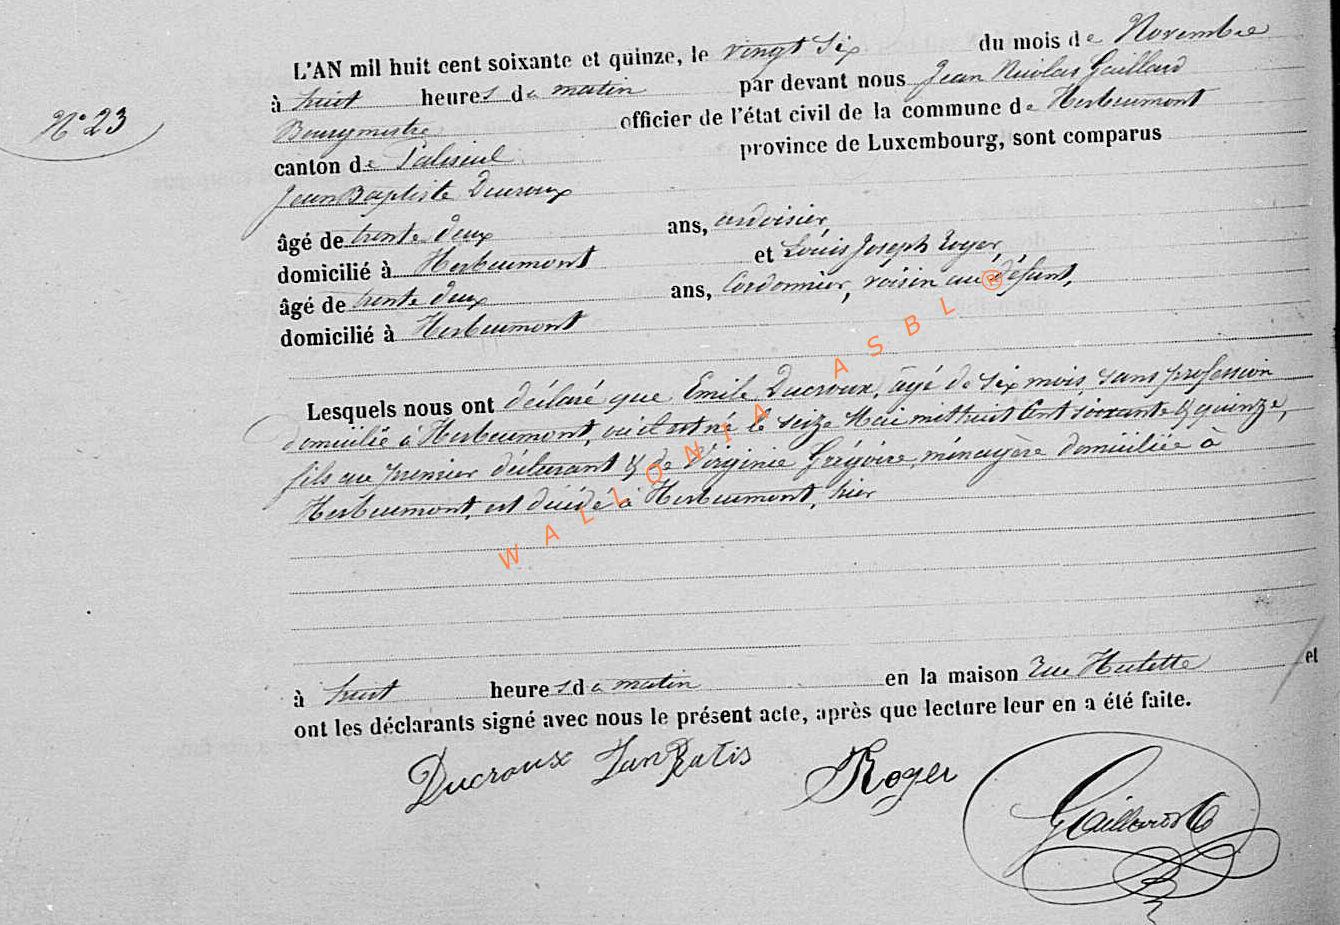 N° 23
L'AN mil huit cent soixante et quinze, le vingt six du mois de Novembre
à huit heures du matin par devant nous Jean Nicolas Gaillard
Bourgmestre officier de l'état civil de la commune de Herbeumont
canton de Paliseul province de Luxembourg, sont comparus
Jean Baptiste Ducroux
âgé de trente deux ans, ardoisier,
domicilié à Herbeumont et Louis Joseph Roger,
âgé de trente deux ans, Cordonnier, voisin au défunt,
domicilié à Herbeumont
Lesquels nous ont déclaré que Emile Ducroux, âgé de six mois, sans profession
domicilié à Herbeumont, où il est né le seize Mai mil huit Cent soixante & quinze,
fils au premier déclarant & de Virginie Grégoire, ménagère domiciliée à
Herbeumont, est décédé à Herbeumont, hier
à huit heures du matin en la maison rue Hulette et
ont les déclarants signé avec nous le présent acte, après que lecture leur en a été faite.
Ducroux Jan Batis Roger Gaillard
WALLONIA ASBL ®